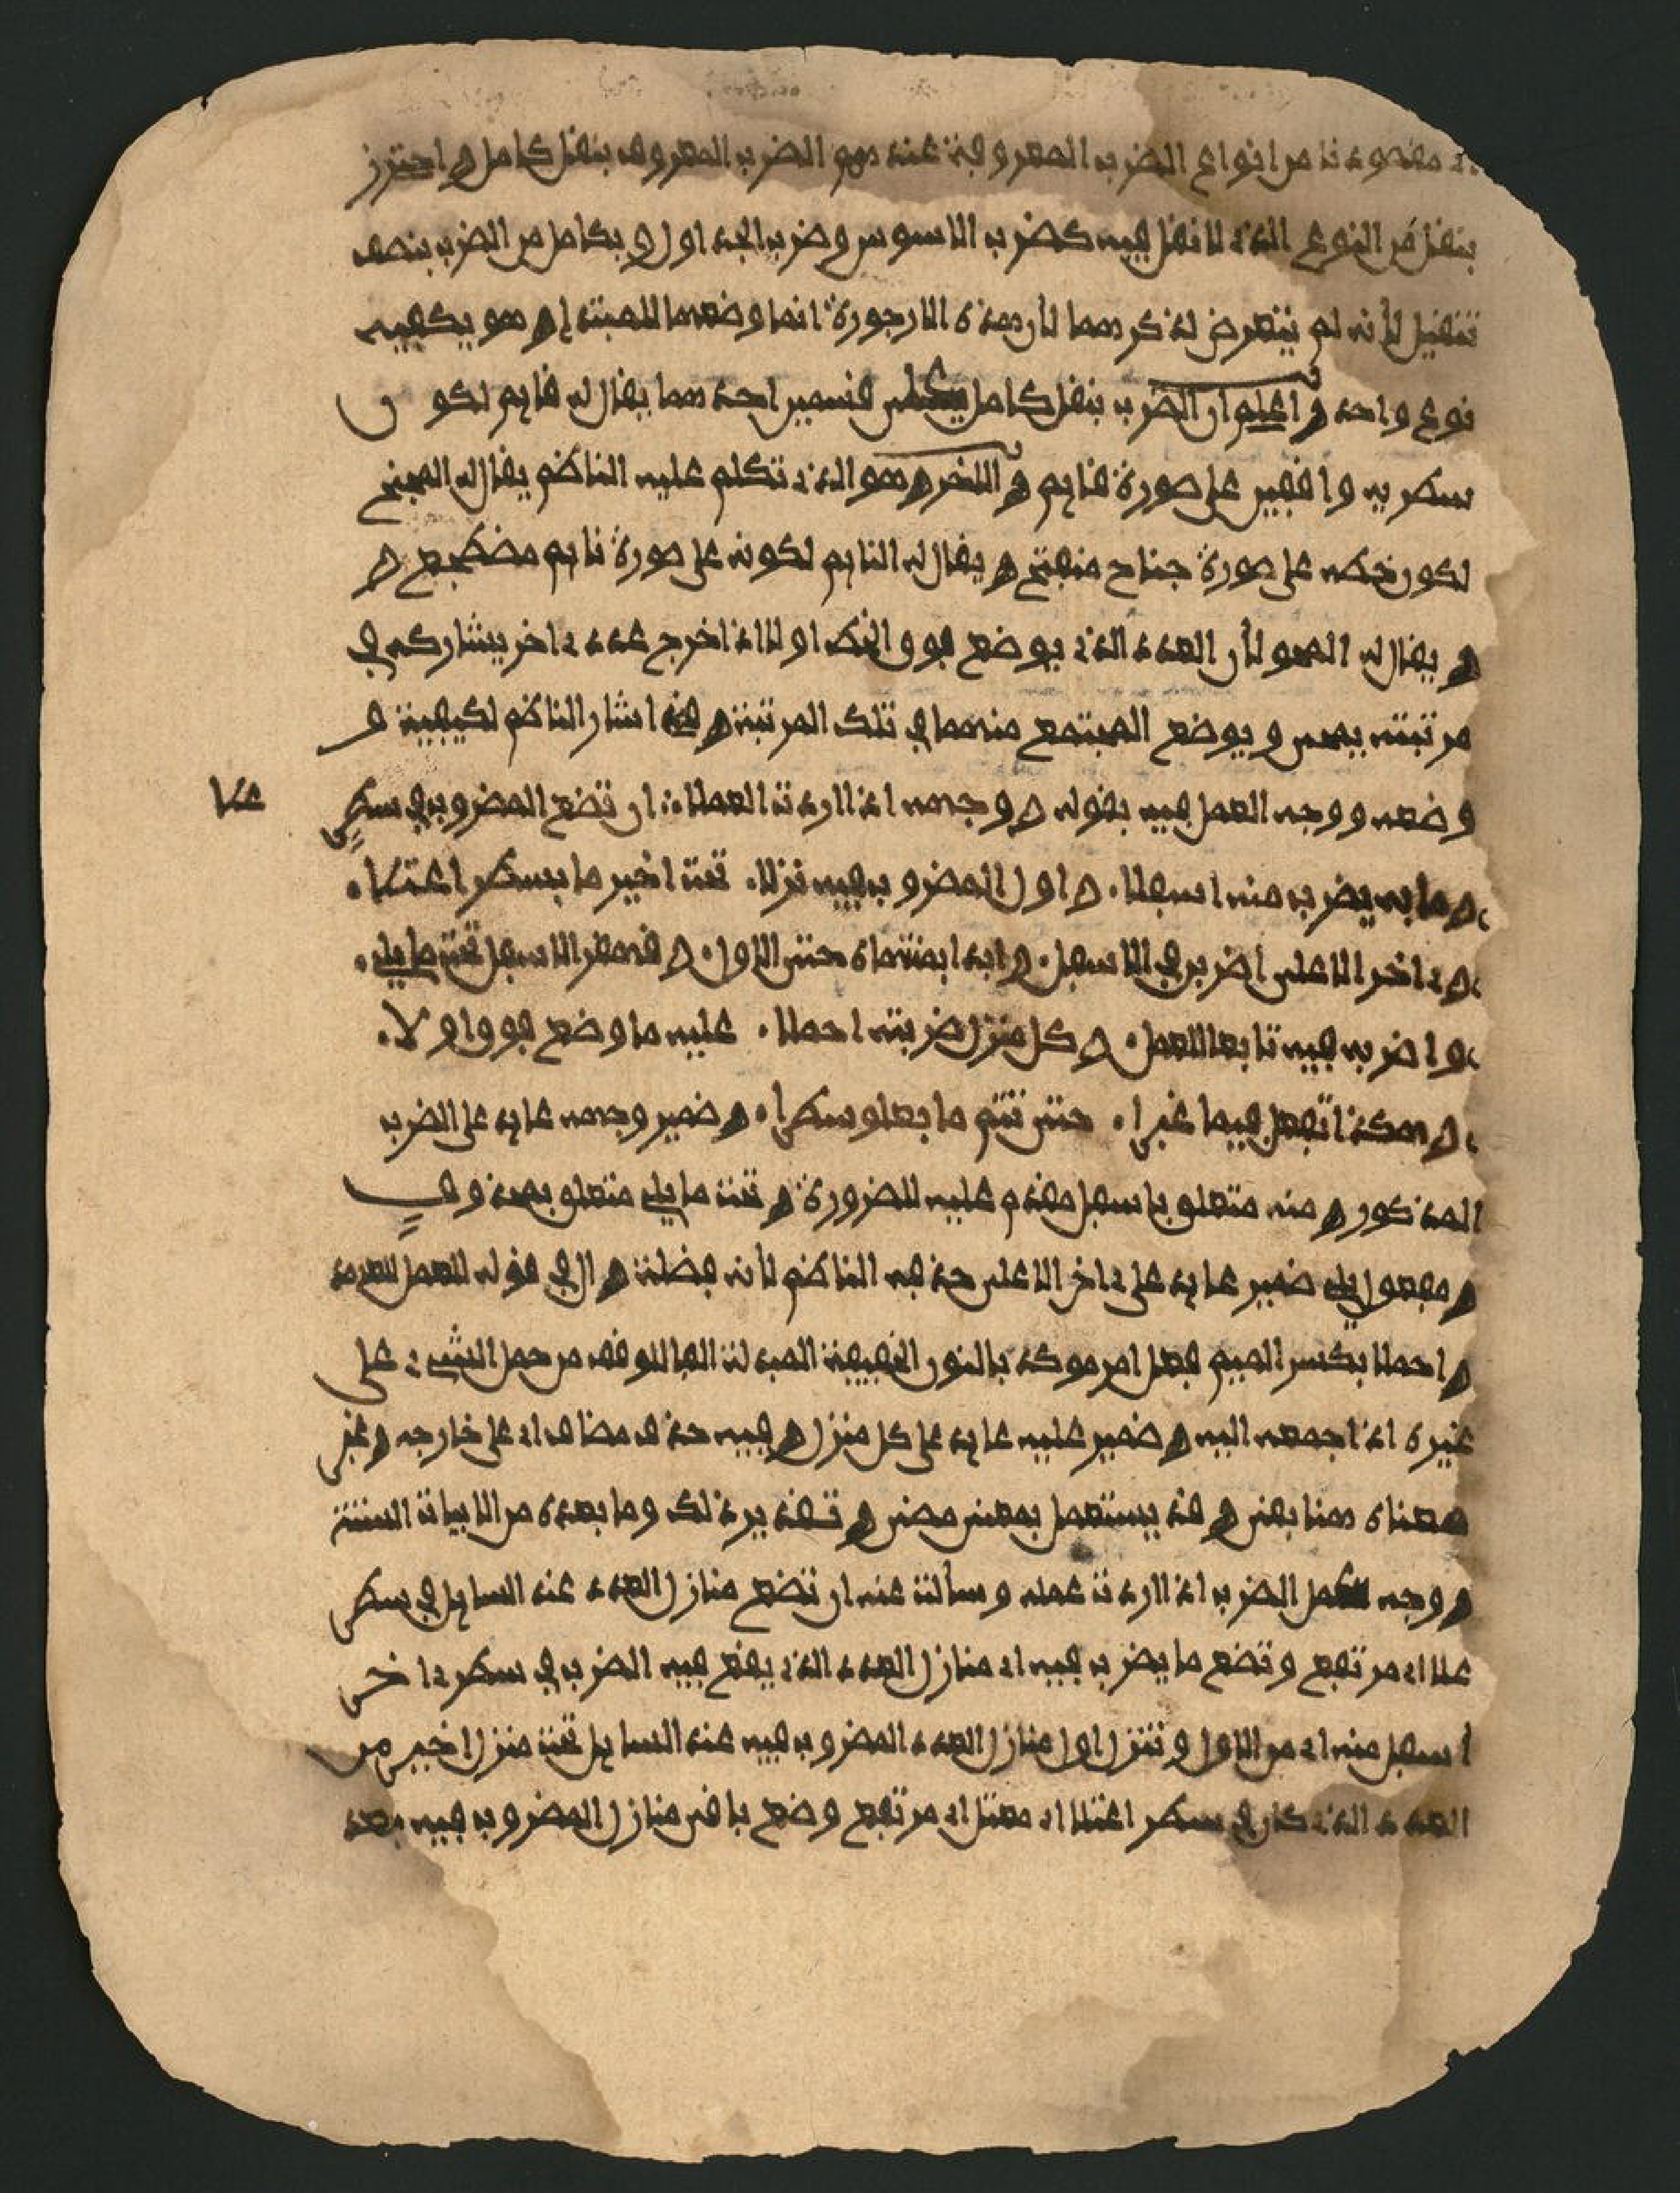 مقصودنا من انواع الضرب المعروفة عندهم الضرب المعروف بنقل كامل و احترز
بنقل من النوع الذي لا نقل فيه كضرب الاسوس وضرب الجداول و بكامل من الضرب بنصف
تنقيل لأنه لم يتعرض لذكرهما لأن هذه الارجورة انما وضعها للمبتدإ و هو يكفيه
نوع واحد و اعلم ان الضرب بنقل كامل قسمين احدهما يقال له قايم لكون
سطريه واقفين على صورة قايم و الاخر و هو الذي تكلم عليه الناظم يقال له المجنح
لكون خطه على صورة جناح منفتح و يقال له النايم لكونه على صورة نايم مضطجع و
و يقال له المحو لأن العدد الذي يوضع فوق الخط او لا اذا خرج عدد داخر يشاركه في
مرتبته يمحى و يوضع المجتمع منهما في تلك المرتبة و قد اشار الناظم لكيفية و
وضعه ووجه العمل فيه بقوله و وجهه اذا اردت العملا ان تضع المضروب في سطر
علا
و ما به يضرب منه اسفلا و اول المضروب فيه نزلا تحت اخير ما بسطر اعتلا
و داخر الاعلى اضرب في الاسفل و ابدا بمنتهاه حتى الاول و قهقر الاسفل تحت ما يلي
و اضرب فيه تابعا للعمل و كل منزل ضربته احملا عليه ما وضع فوق اولا
و هكذا تفعل فيما غبرا حتى تتم ما بعلو سطرا و ضمير وجهه عايد على الضرب
المذكور و منه متعلق باسفل مقدم عليه للضرورة و تحت ما يلي متعلق بمحذوف
و مفعول يلي ضمير عايد على داخر الاعلى حذفه الناظم لأنه فضلة و ال في قوله للعمل للعهد
و احملا بكسر الميم فعل امر موكد بالنون الخفيفة المبدلة الفا للوقف من حمل الشيء على
غيره اذا جمعه اليه و ضمير عليه عايد على كل منزل و فيه حذف مضاف اي على خارجه و غبر
معناه هنا بقى و قد يستعمل بمعنى مضى و تقدير ذلك وما بعده من الابيات الستة
و وجه عمل الضرب اذا اردت عمله و سألت عنه ان تضع منازل العدد عند السايل في سطر
علا اي مرتفع و تضع ما يضرب فيه اي منازل العدد الذي يقع فيه الضرب في سطر داخر
أسفل منه اي من الاول و تنزل اول منازل العدد المضروب فيه عند السايل تحت منزل اخير من
العدد الذي كان في سطر اعتلا اي معتل اي مرتفع و ضع باقى منازل المضروب فيه بعد